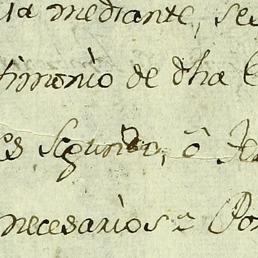 ia mediante, se
timonio de dha
es segundo, ô
necesarios